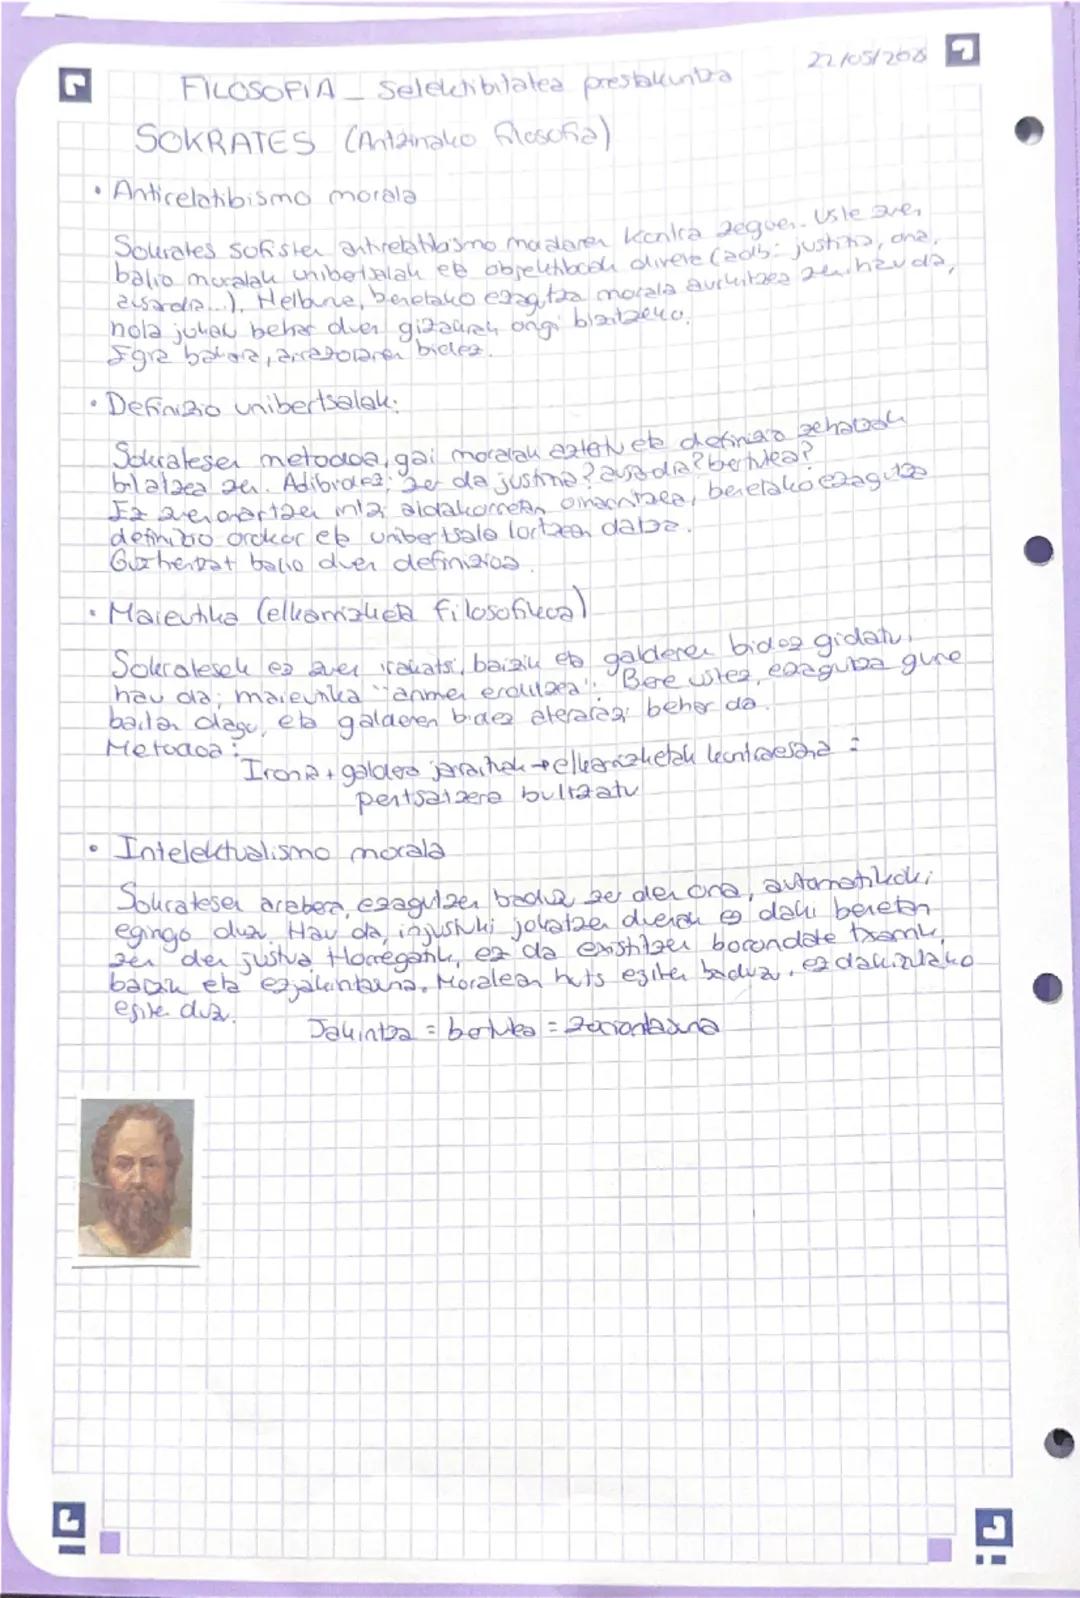 22/05/2025
FILOSOFIA _ Selektibitatea prestakuntza
SOKRATES (Antzinako filosofia)
• Antirelatibismo morala
Sokrates sofisten antirelatibismo moralaren kontra zegoen. Uste zuen,
balio moralak unibertsalak eta objektiboak direla (adb: justizia, ona,
ausardia...). Helburua, benetako ezagutza morala aurkitzea zen, hau da,
nola jokatu behar duen gizakiak ongi bizitzeko.
Egia bakarra, arrazoiaren bidez.
• Definizio unibertsalak:
Sokratesen metodoa, gai moralak aztertu eta definizio zehatzak
bilatzea zen. Adibidez: zer da justizia? ausardia? bertutea?
Ez zuen onartzen iritzi aldakorretan oinarritzea, benetako ezagutza
definizio orokor eta unibertsala lortzean datza.
Guztientzat balio duen definizioa.
• Maieutika (elkarrizketa filosofikoa)
Sokratesek ez zuen irakatsi, baizik eta galderen bidez gidatu,
hau da; maieutika "arimen erditzea". Bere ustez, ezagutza gure
baitan dago, eta galderen bidez aterarazi behar da.
Metodoa:
Ironia + galdera jarraituak → elkarrizketak kontraesana =
pentsatzera bultzatu
• Intelektualismo morala
Sokratesen arabera, ezagutzen baduzu zer den ona, automatikoki
egingo duzu. Hau da, injustuki jokatzen duenak ez daki benetan
zer den justua. Horregatik, ez da existitzen borondate txarrik,
baizik eta ezjakintasuna. Moralean huts egiten baduzu, ez dakizulako
egiten duzu.
Jakintza = bertutea = zoriontasuna